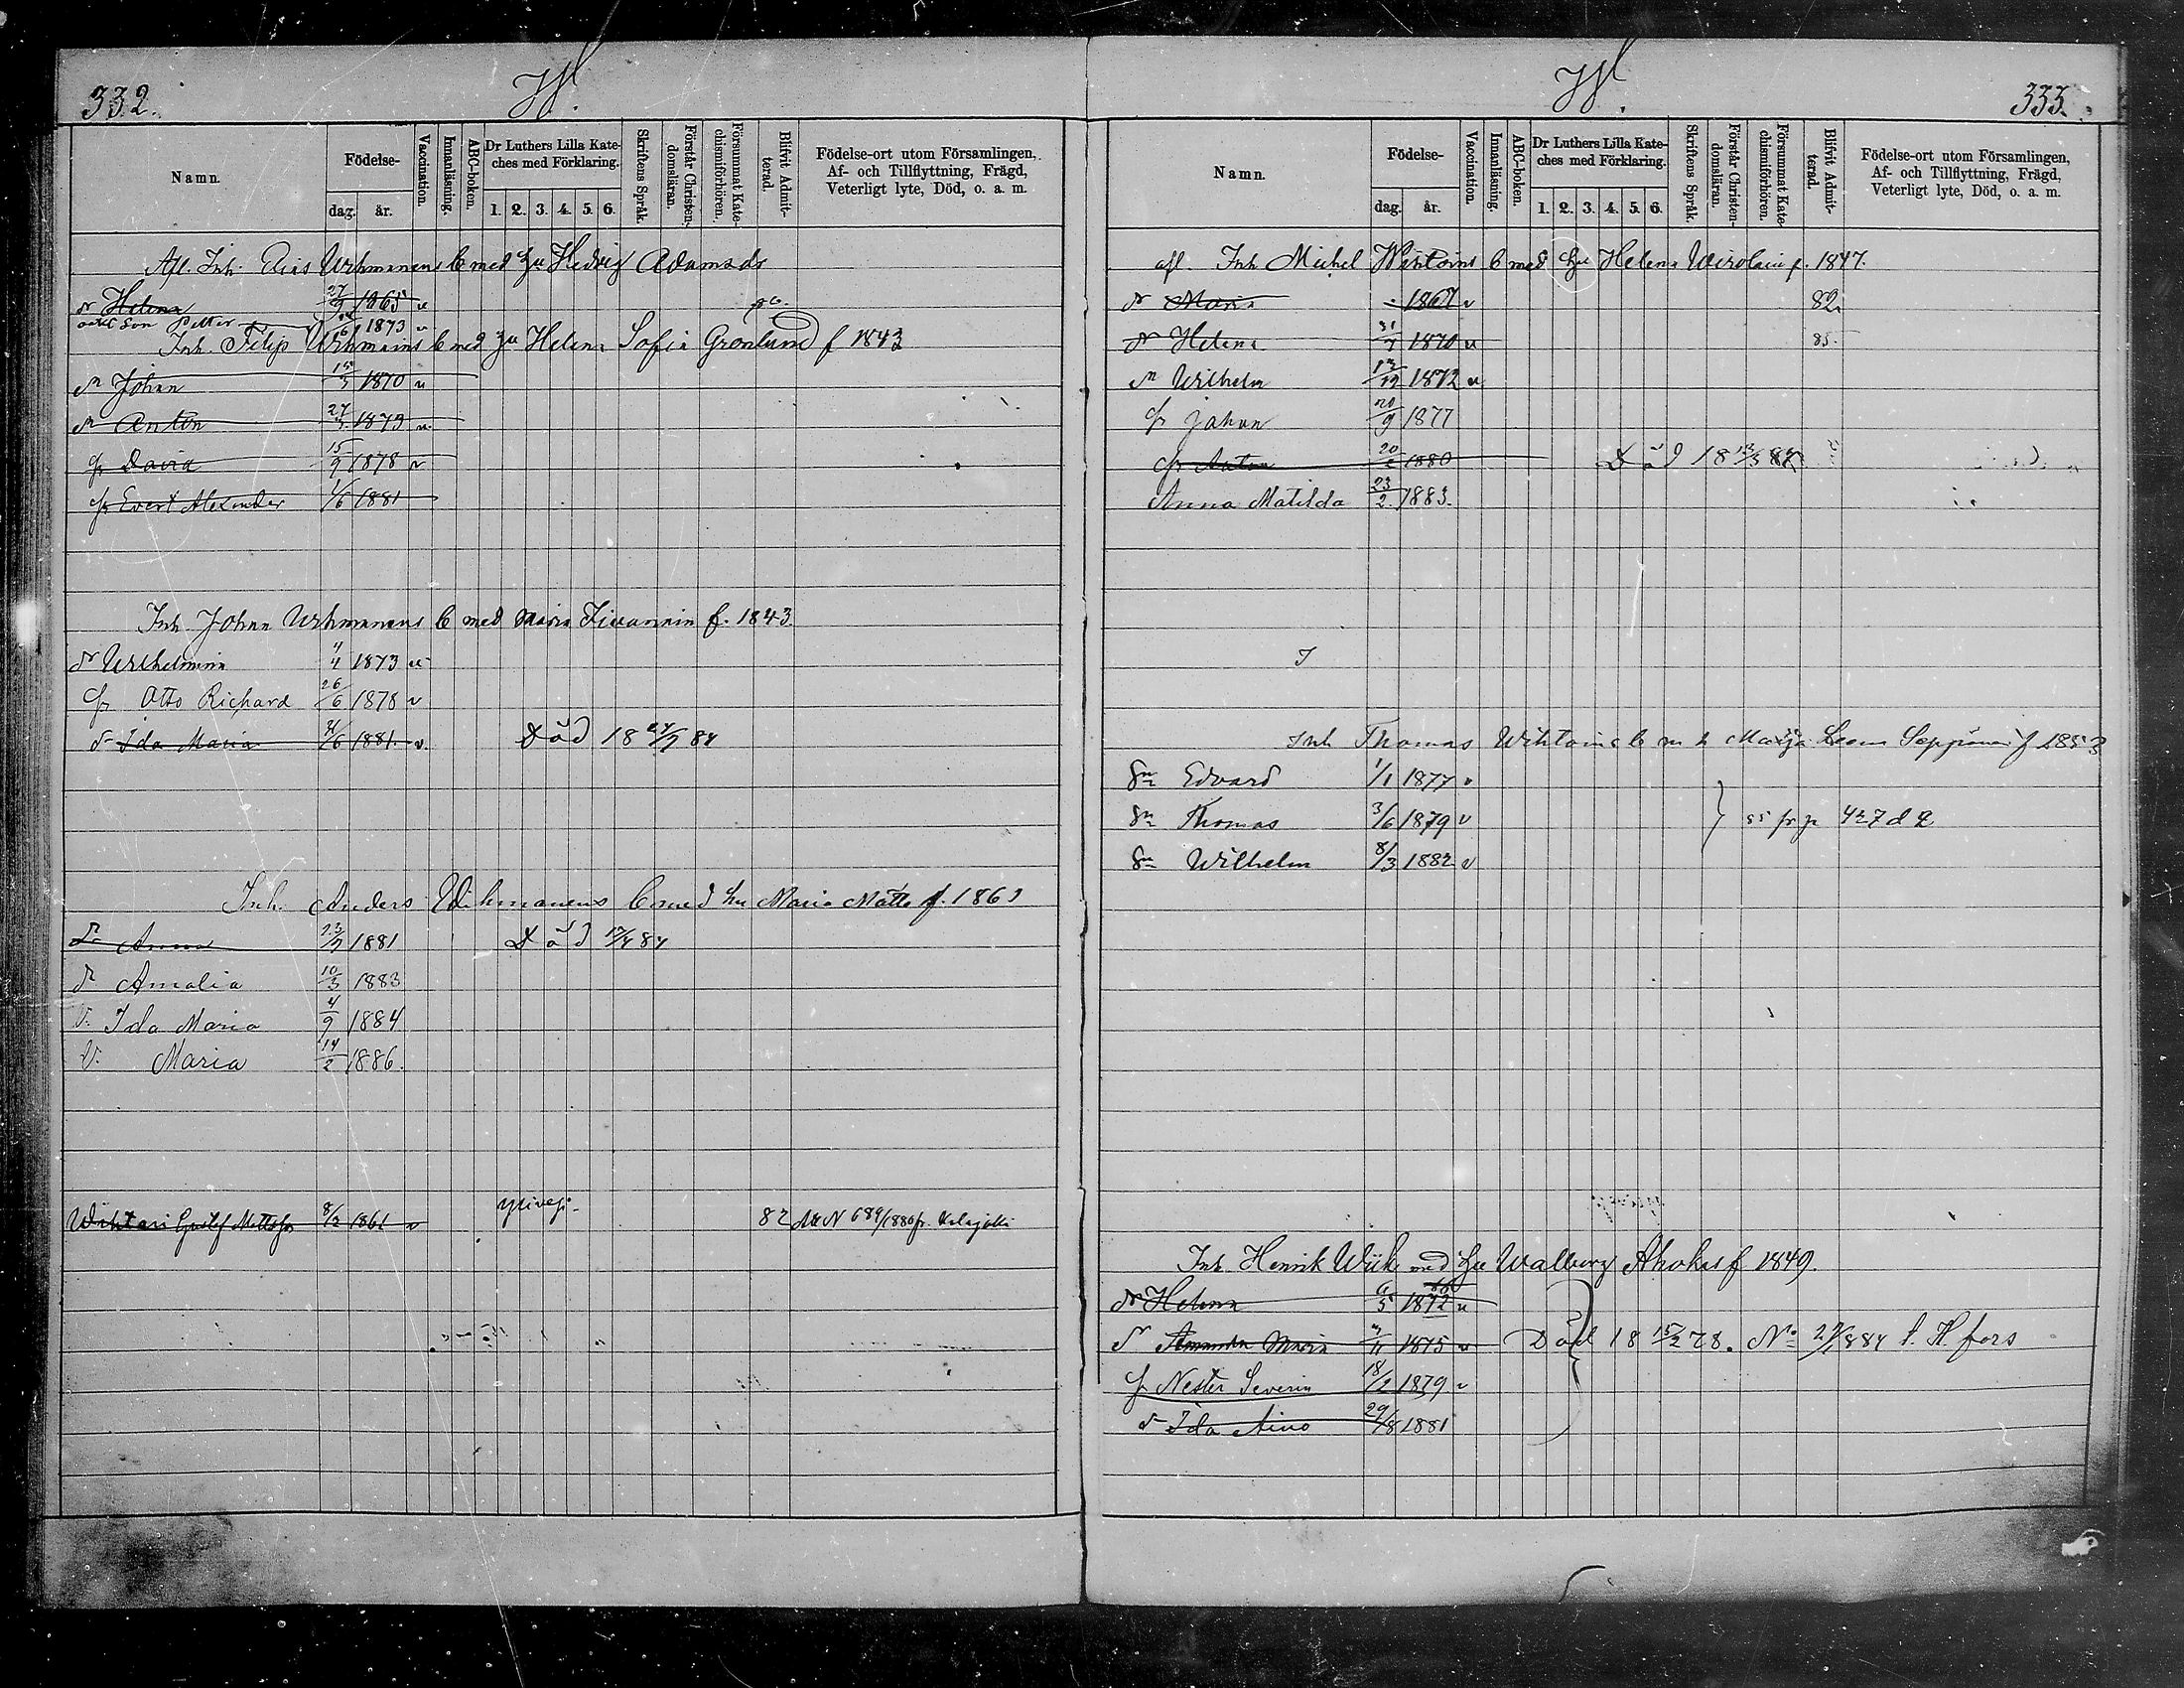 332.
W.
Namn.
Födelse-
dag.
år.
Vaccination.
Innanläsning.
ABC-boken.
Dr Luthers Lilla Kate-
ches med Förklaring.
1. 2. 3. 4. 5. 6.
Skriftens Språk.
Förstår Christen-
domsläran.
Försummat Kate-
chismiförhören.
Blifvit Admit-
terad.
Födelse-ort utom Församlingen,
Af- och Tillflyttning, Frägd,
Veterligt lyte, Död, o. a. m.
Afl. Inh. Elias Uhmanens b med hu Hedvig Adamsdr
dr Helena 27/9 1865 v
Son Petter 1873 v
Inh. Filip b med hu Helena Sofia Grönlund f 1843
Johan 1870 v
Anton 27/3 1873 v
gr David 15/9 1878 v
gr Evert Alexander 1/6 1881
Inh Johan Uhmanens b med Maria f. 1843.
dr Wilhelmina 1873 v
gr Otto Richard 26/6 1878 v
dr Ida Maria 1881. v. Död 18 84
Inh. Anders Wihmanens b med hu Maria Matts f. 1861
dr Anna 1881 Död 84
dr Amalia 10/3 1883
D. Ida Maria 4/9 1884
D. Maria 14/2 1886.
Wihtari Gustf Mattsson 8/2 1861 v 82 N 689/1880 fr. Kalajoki
W.
333.
Namn.
Födelse-
dag.
år.
Vaccination.
Innanläsning.
ABC-boken.
Dr Luthers Lilla Kate-
ches med Förklaring.
1. 2. 3. 4. 5. 6.
Skriftens Språk.
Förstår Christen-
domsläran.
Försummat Kate-
chismiförhören.
Blifvit Admit-
terad.
Födelse-ort utom Församlingen,
Af- och Tillflyttning, Frägd,
Veterligt lyte, Död, o. a. m.
afl. Inh Michel Wihtoins b med hu Helena Wirolain f. 1847.
dr Maria 1867 v 82
dr Helena 31/7 1870 v 85.
Wilhelm 12/12 1872 v
gr Johan 20/9 1877
gr Anton 1880 Död 18
Anna Matilda 23/2 1883.
I
Inh Thomas Wihtoins b m h Maija Leena Seppänen f 1853
Sn Edvard 1/1 1877 v
Sn Thomas 3/6 1879 v } 427
Sn Wilhelm 8/3 1882 v
Inh. Henrik Wiik med hu Walborg Ahokas f 1849.
dr Helena 1872 v
dr Amanda Maria 1875 v Död 18 15/2 78. No 1884 t. H.fors
gr Nestor Severin 18/2 1879 v
dr Ida Aino 29/8 1881